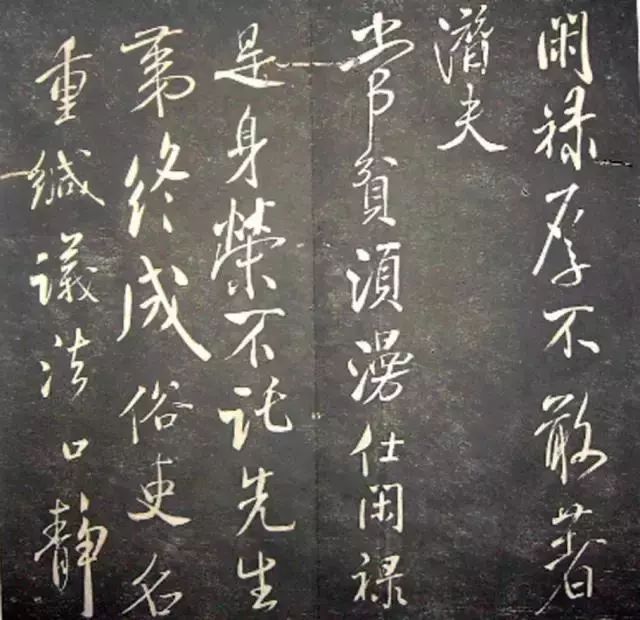 閑祿厚不敢著
潛夫
常貧須漫仕閑祿
是身榮不託先生
第終成俗吏名
重緘議法口靜